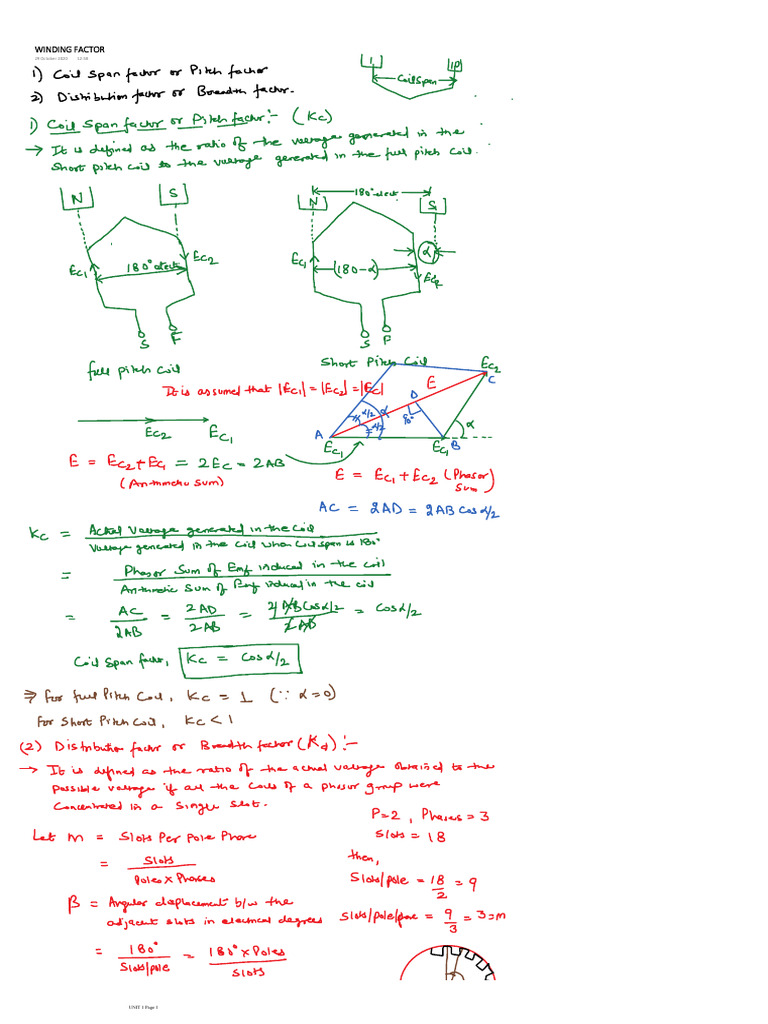 WINDING FACTOR
29 October 2020 12:58
1) Coil Span factor or Pitch factor
2) Distribution factor or Breadth factor.
1 10
Coil span
1) Coil Span factor or Pitch factor :- (Kc)
→ It is defined as the ratio of the voltage generated in the
Short pitch coil to the voltage generated in the full pitch Coil.
N S
EC1 180° elect EC2
S F
full pitch Coil
180° elect
N S
EC1 (180-α) α EC2
S F
Short Pitch Coil
It is assumed that |EC1| = |EC2| = |EC|
EC2 EC1
E = EC2 + EC1 = 2EC = 2AB
(Arithmetic Sum)
EC2
E C
D
α/2 α
α/2 90° α
A EC1 EC1 B
E = EC1 + EC2 (Phasor
Sum)
AC = 2AD = 2AB Cos α/2
Kc = Actual Voltage generated in the Coil
Voltage generated in the Coil when Coil span is 180°
= Phasor Sum of Emf induced in the coil
Arithmetic Sum of Emf induced in the coil
= AC/2AB = 2AD/2AB = 2AB Cos α/2 / 2AB = Cos α/2
Coil Span factor, Kc = Cos α/2
⇒ for full Pitch Coil, Kc = 1 (∵ α=0)
for Short Pitch Coil, Kc < 1
(2) Distribution factor or Breadth factor (Kd) :-
→ It is defined as the ratio of the actual Voltage obtained to the
possible voltage if all the Coils of a phasor group were
Concentrated in a Single Slot.
P=2, Phases = 3
Slots = 18
Let m = Slots Per pole Phase
= Slots / Poles x Phases
then,
Slots/pole = 18/2 = 9
β = Angular displacement b/w the
adjacent slots in electrical degrees
Slots/pole/phase = 9/3 = 3 = m
= 180° / Slots/pole = 180° x Poles / Slots
UNIT 1 Page 1